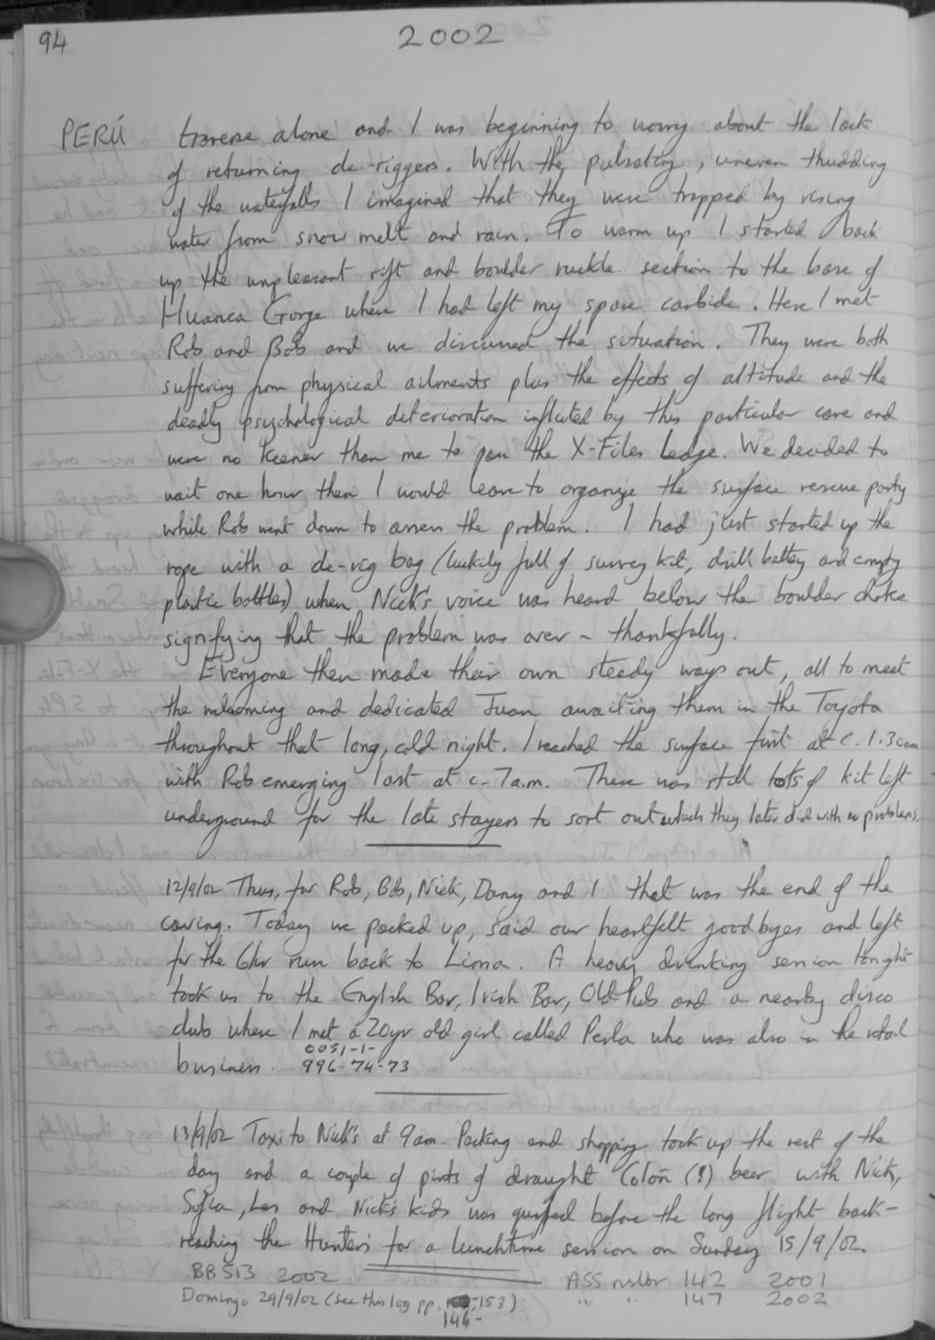 94
2002
PERÚ traverse alone and I was beginning to worry about the lack
of returning de-riggers. With the pulsating, uneven thudding
of the waterfalls I imagined that they were trapped by rising
water from snow melt and rain. To warm up I started back
up the unpleasant rift and boulder ruckle section to the base of
Huanca Gorge where I had left my spare carbide. Here I met
Rob and Bob and we discussed the situation. They were both
suffering from physical ailments plus the effects of altitude and the
deadly psychological deterioration inflicted by this particular cave and
were no keener than me to pass the X-Files Ledge. We decided to
wait one hour then I would leave to organize the surface rescue party
while Rob went down to assess the problem. I had just started up the
rope with a de-rig bag (luckily full of survey kit, drill battery and empty
plastic bottles) when Nick's voice was heard below the boulder choke
signifying that the problem was over – thankfully.
Everyone then made their own steady ways out, all to meet
the welcoming and dedicated Juan awaiting them in the Toyota
throughout that long, cold night. I reached the surface first at c. 1.30am
with Rob emerging last at c. 7a.m. There was still lots of kit left
underground for the late stayers to sort out which they later did with no problems.
12/9/02 Thus, for Rob, Bob, Nick, Dany and I that was the end of the
caving. Today we packed up, said our heartfelt goodbyes and left
for the 6hr run back to Lima. A heavy drinking session tonight
took us to the English Bar, Irish Bar, Old Pub and a nearby disco
club where I met a 20yr old girl called Perla who was also in the retail
business. 0051-1-
996-74-73
13/9/02 Taxi to Nick's at 9am. Packing and shopping took up the rest of the
day and a couple of pints of draught Colón (?) beer with Nick,
Sofia, Les and Nick's kids was quaffed before the long flight back –
reaching the Hunters' for a lunchtime session on Sunday 15/9/02.
BB 513 2002 ASS nslbr 142 2001
Domingo 29/9/02 (see this log pp. 146-153) " " 147 2002